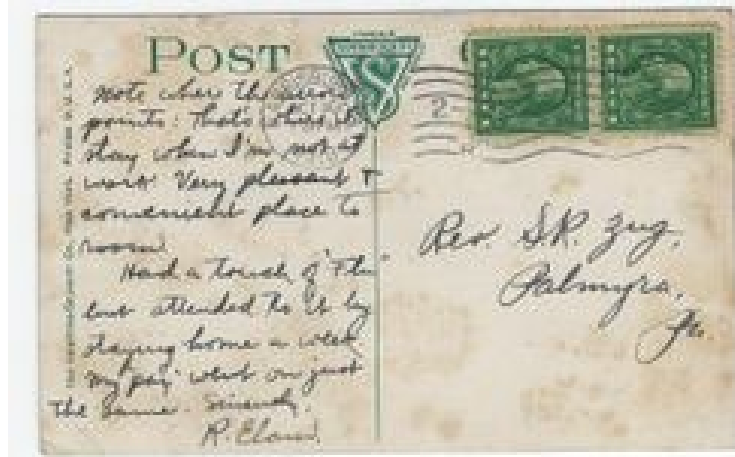 POST
note where the arrow
points. That's where I
stay when I'm not at
work. Very pleasant +
convenient place to
room.
Had a touch of "Flu"
but attended to it by
staying home a week
my pay went on just
the same. Sincerely,
R.
Rev. S.R. Zug,
Palmyra,
Pa.
2-